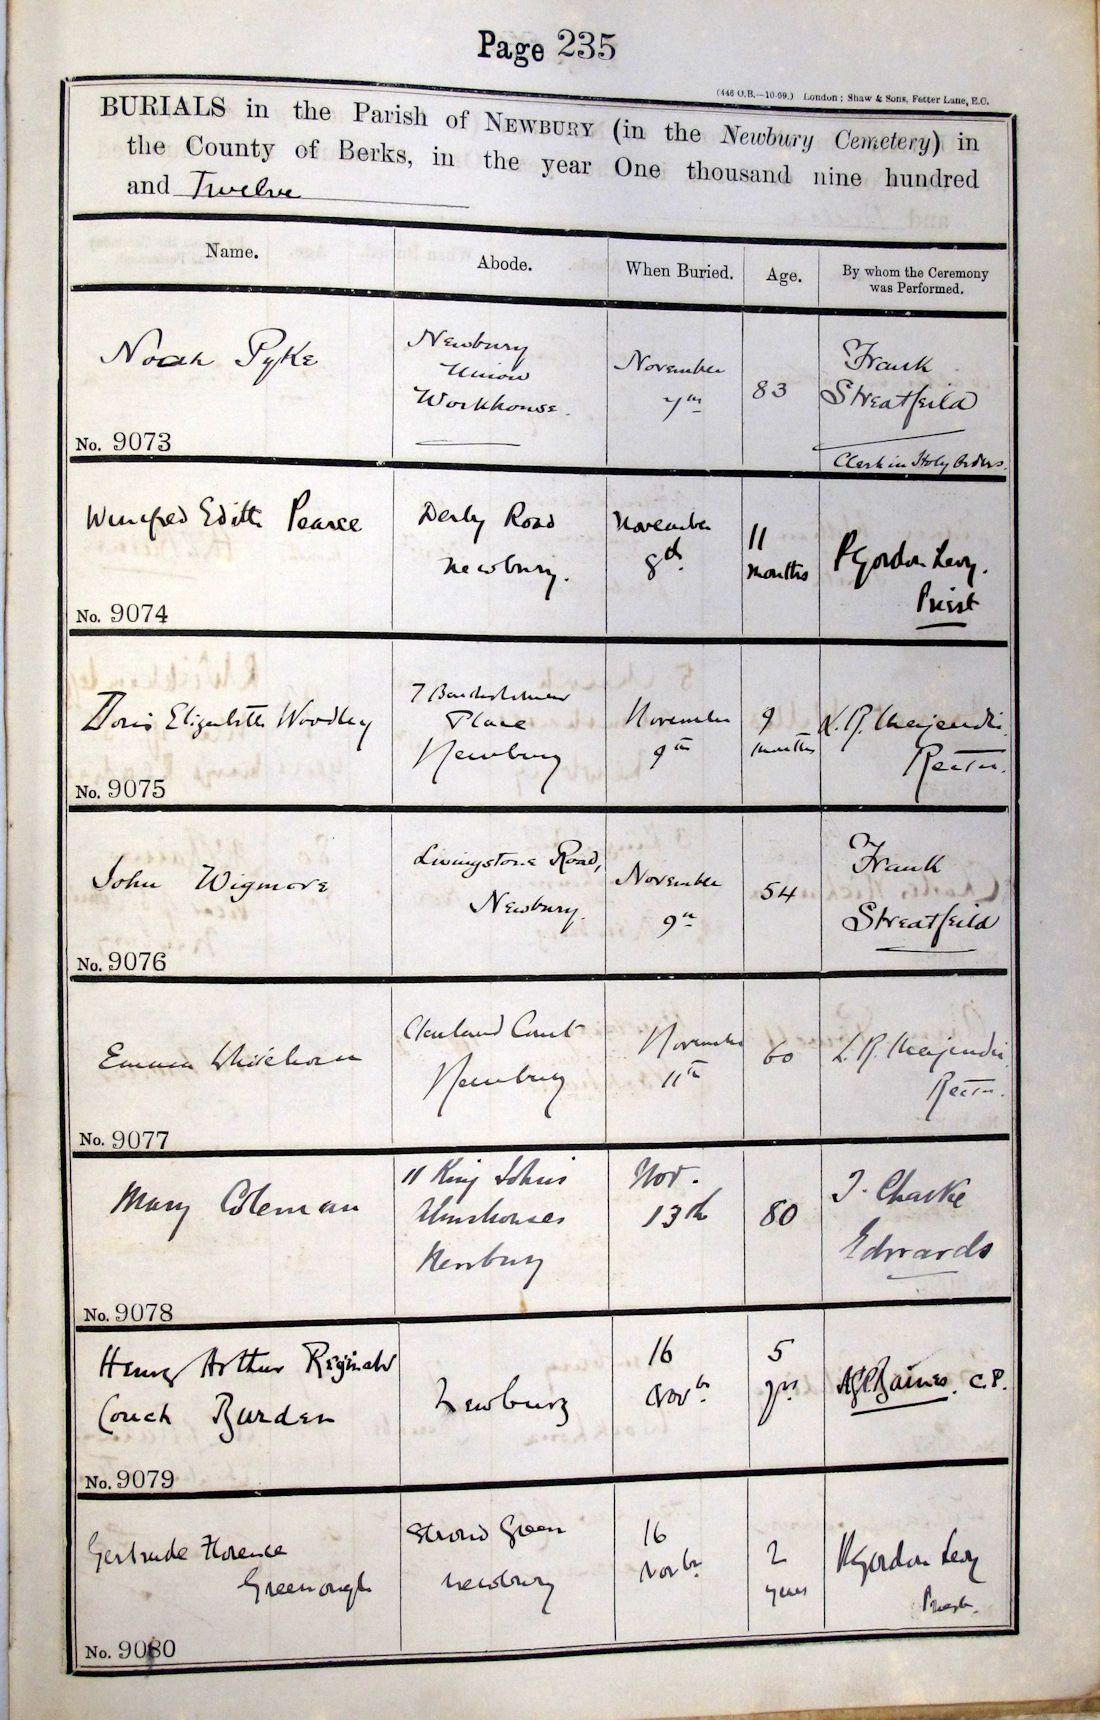 Page 235
(446 O.B.—10-99.) London; Shaw & Sons, Fetter Lane, E.C.
BURIALS in the Parish of NEWBURY (in the Newbury Cemetery) in
the County of Berks, in the year One thousand nine hundred
and Twelve
Name. Abode. When Buried. Age. By whom the Ceremony was Performed.
Noah Pyke
Newbury
Union
Workhouse.
November
7th
83
Frank
Streatfeild
Clerk in Holy Orders.
No. 9073
Winifred Edith Pearce
Derby Road
Newbury.
November
8th.
11
months
Gordon Levy.
Priest
No. 9074
Doris Elizabeth Woodley
7 Bartholomew
Place
Newbury
November
9th
9
months
L. R. Majendie
Rector.
No. 9075
John Wigmore
Livingstone Road,
Newbury.
November
9th
54
Frank
Streatfeild
No. 9076
Emma Whitehorn
Court
Newbury
November
11th
60
L. R. Majendie
Rector.
No. 9077
Mary Coleman
11 King John's
Almshouses
Newbury
Nov.
13th
80
J. Charke
Edwards
No. 9078
Henry Arthur Reginald
Couch Burden
Newbury
16
Novbr.
5
yrs
Baines. C.P.
No. 9079
Gertrude Florence
Greenough
Stroud Green
Newbury
16
Novbr
2
years
Gordon Levy
Priest.
No. 9080